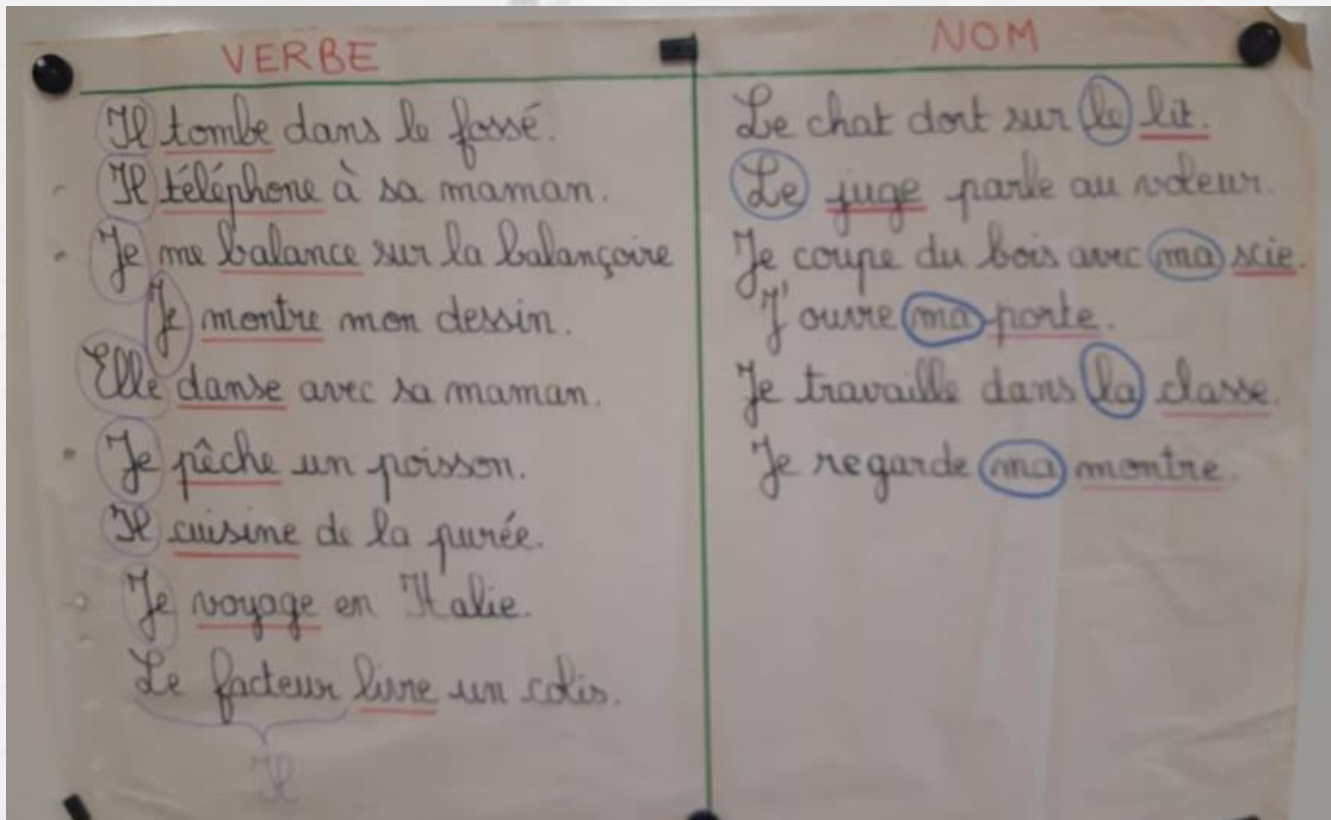 VERBE
Il tombe dans le fossé.
Il téléphone à sa maman.
Je me balance sur la balançoire
Je montre mon dessin.
Elle danse avec sa maman.
Je pêche un poisson.
Il cuisine de la purée.
Je voyage en Italie.
Le facteur livre un colis.
Il
NOM
Le chat dort sur le lit.
Le juge parle au voleur.
Je coupe du bois avec ma scie.
J'ouvre ma porte.
Je travaille dans la classe.
Je regarde ma montre.